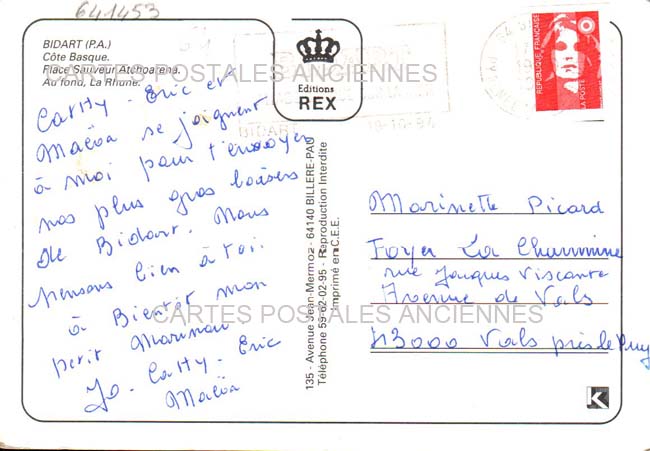 641453
BIDART (P.A.)
Côte Basque.
Place Sauveur Atchoarena.
Au fond, La Rhune.
CARTES POSTALES ANCIENNES
Editions
REX
BIDART
19-10-94
REPUBLIQUE FRANÇAISE
LA POSTE
Cathy - Eric et
Maëva se joignent
à moi pour t'envoyer
nos plus gros baisers
de Bidart. Nous
pensons bien à toi.
à Bientôt mon
petit Marinou
Jo - Cathy - Eric
Maëva
135 - Avenue Jean-Mermoz - 64140 BILLERE-PAU
Téléphone 59-62-02-95 - Reproduction Interdite
Imprimé en C.E.E.
Marinette Picard
Foyer La Chaumine
rue Jacques Viscante
Avenue de Vals
43000 Vals près le Puy
CARTES POSTALES ANCIENNES
K